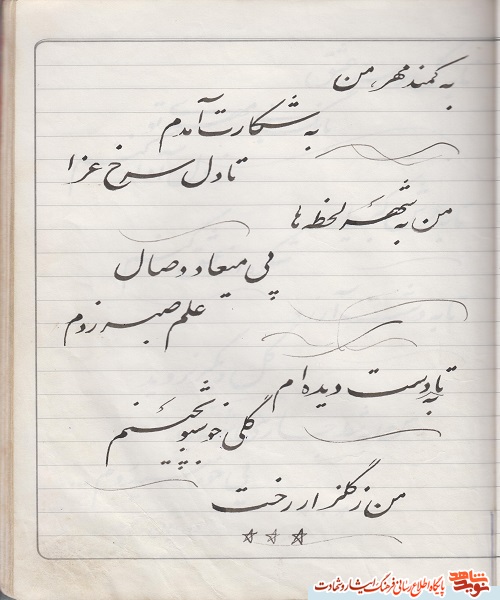 به کمند مهر من
به شکارت آمدم
تا دل سرخ عزا
من به شهر لحظه ها
پی میعاد وصال
علم صبر زدم
تا به دست دیده ام
گلی خوشبو بچینم
من ز گلزار رخت
نوید شاهد
پایگاه اطلاع رسانی فرهنگ ایثار و شهادت